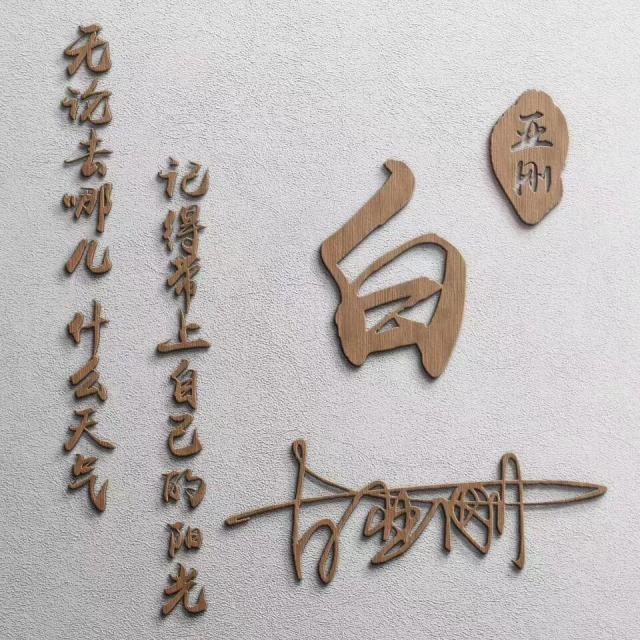 无论去哪儿 什么天气
记得带上自己的阳光
白
亚刚